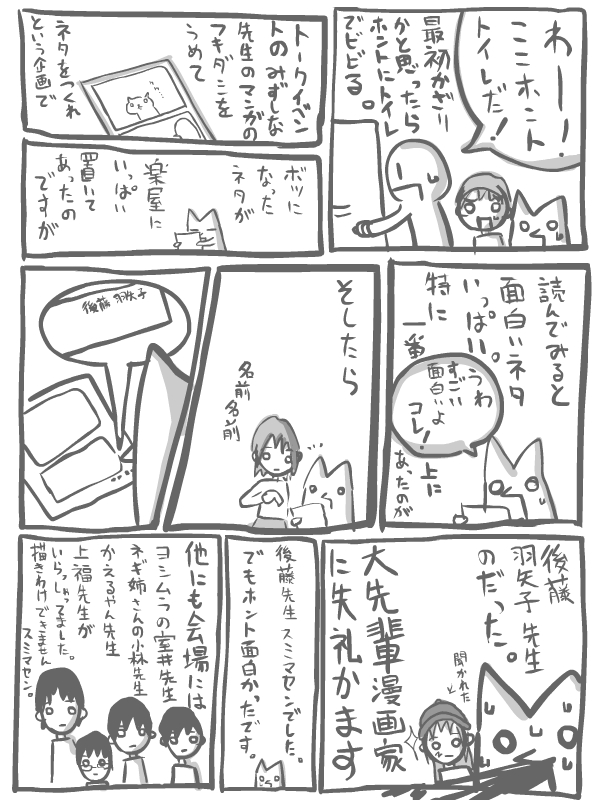 わーー！
ここホント
トイレだ！
最初かぎり
かと思ったら
ホントにトイレ
でビビる。
トークイベン
トのみずしな
先生のマンガの
フキダシを
うめて
ネタをつくれ
という企画で
ボツに
なった
ネタが
楽屋に
いっぱい
置いて
あったの
ですが
読んでみると
面白いネタ
いっぱい。
特に
一番
上に
あったのが
うわ
すごい
面白いよ
コレ！
そしたら
名前名前
後藤 羽矢子
後藤
羽矢子先生
のだった。
聞かれた
大先輩漫画家
に失礼かます
後藤先生スミマセンでした。
でもホント面白かったです。
他にも会場には
ヨシムラの室井先生
ネギ姉さんの小林先生
かえるやん先生
上福先生が
いらっしゃってました。
描きわけできません
スミマセン。